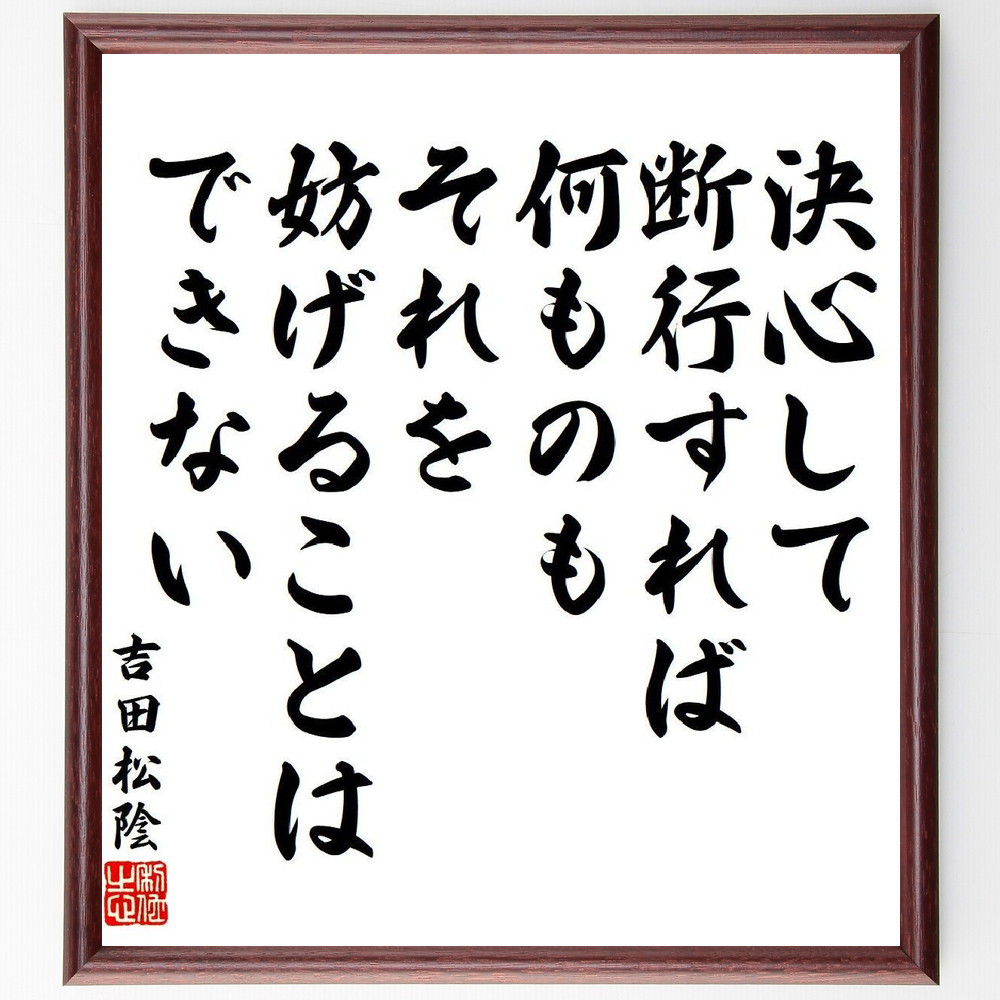 決心して
断行すれば
何ものも
それを
妨げることは
できない
吉田松陰